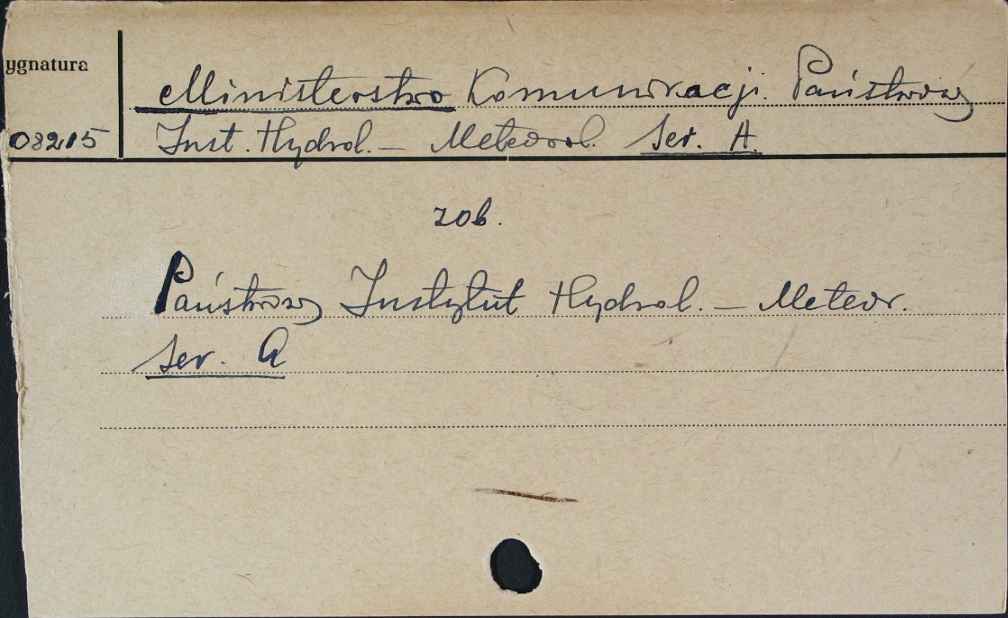 ygnatura
Ministerstwo Komunikacji. Państwowy
08215 Inst. Hydrol. — Meteorol. Ser. A.
zob.
Państwowy Instytut Hydrol. — Meteor.
Ser. A